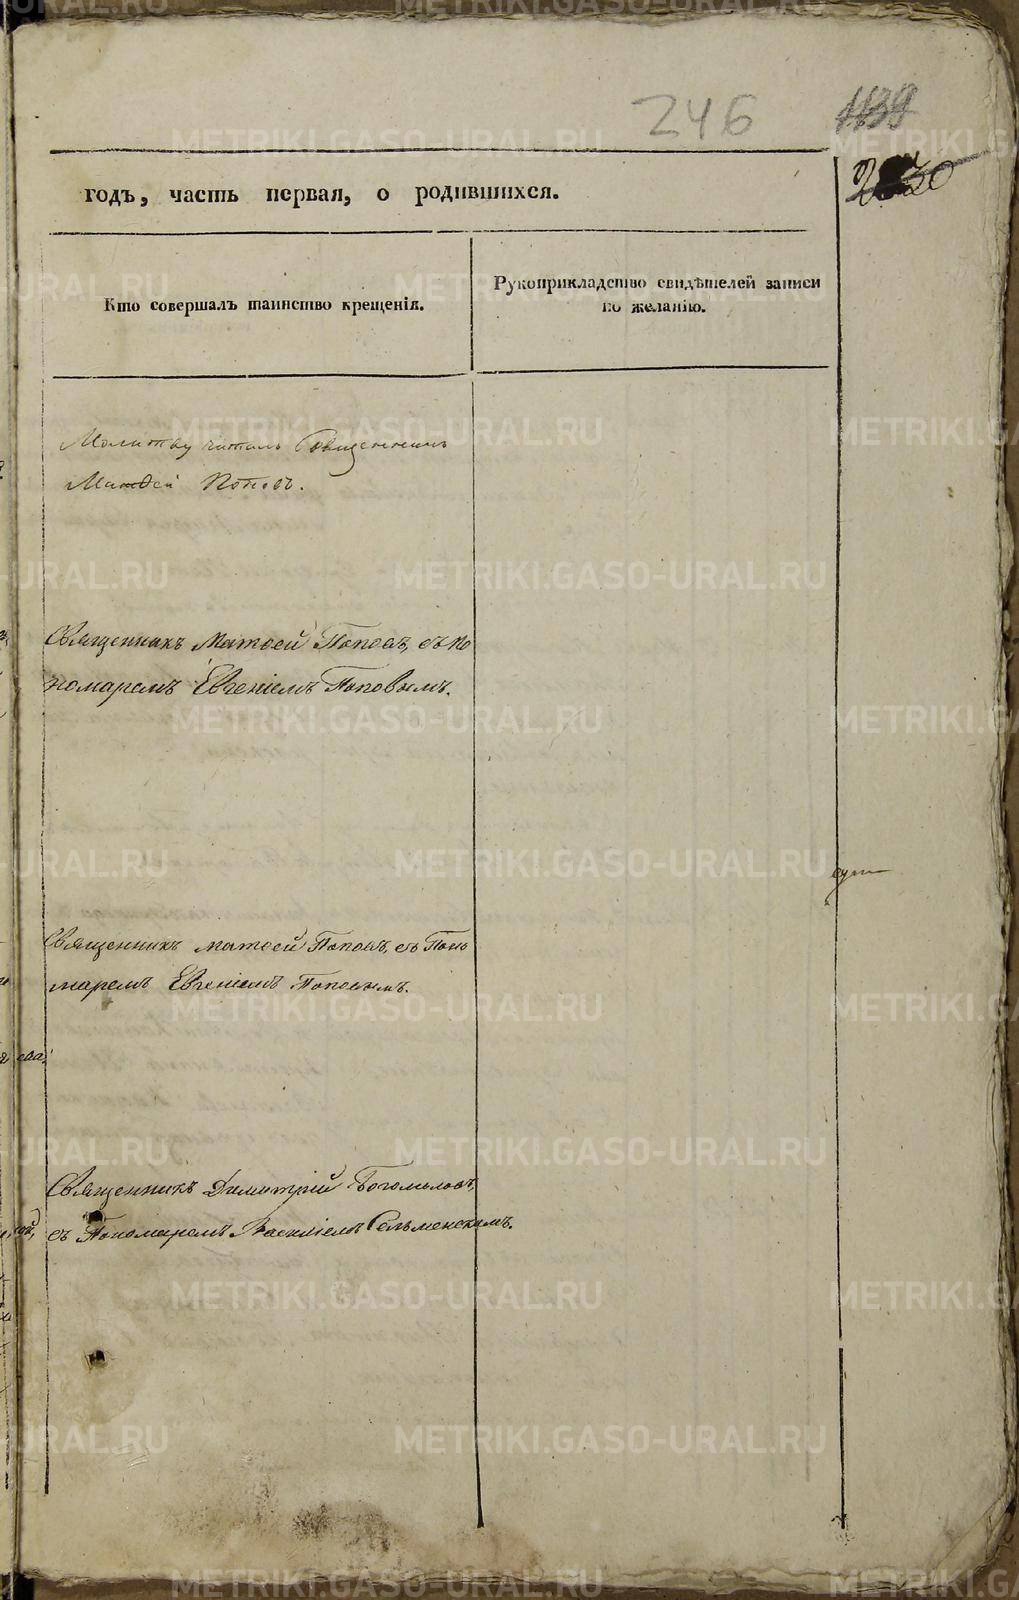 246
1139
годъ, часть первая, о родившихся.
Кто совершалъ таинство крещенія.
Рукоприкладство свидѣтелей записи
по желанію.
Молитву читалъ Священникъ
Матѳей Поповъ.
Священникъ Матѳей Поповъ, съ по
номаремъ Евгеніемъ Поповымъ.
Священникъ Матѳей Поповъ, съ Поно
маремъ Евгеніемъ Поповымъ.
Священникъ Димитрій Богомоловъ,
съ Пономаремъ Василіемъ Сельменскимъ.
METRIKI.GASO-URAL.RU